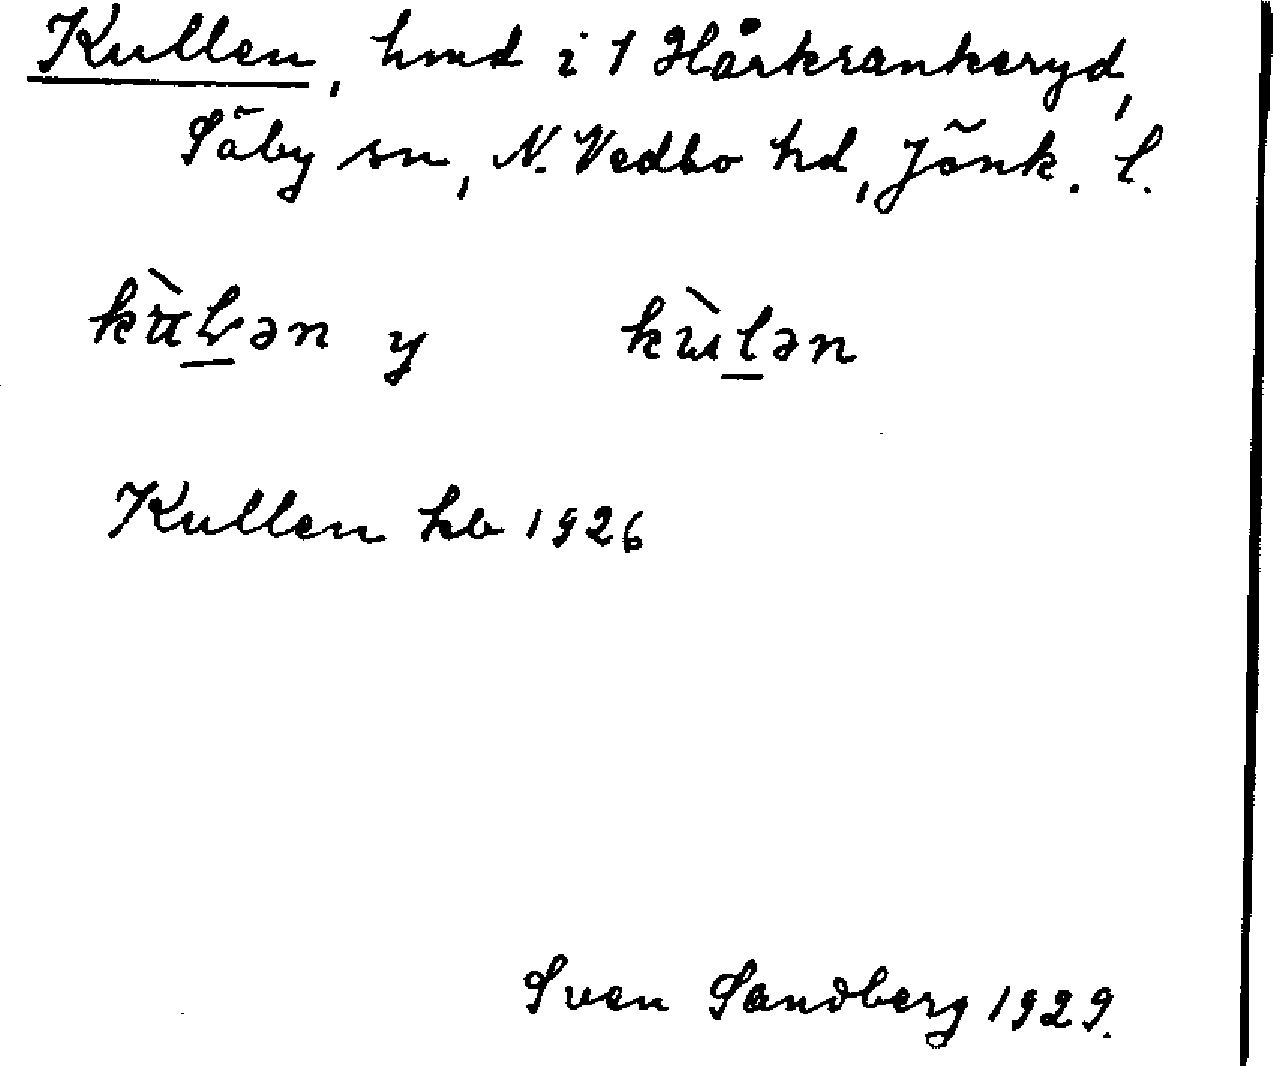 Kullen, hmd i 1 Hårkrankeryd,
Säby sn, N. Vedbo hd, Jönk. l.
y
Kullen hb 1926
Sven Sandberg 1929.